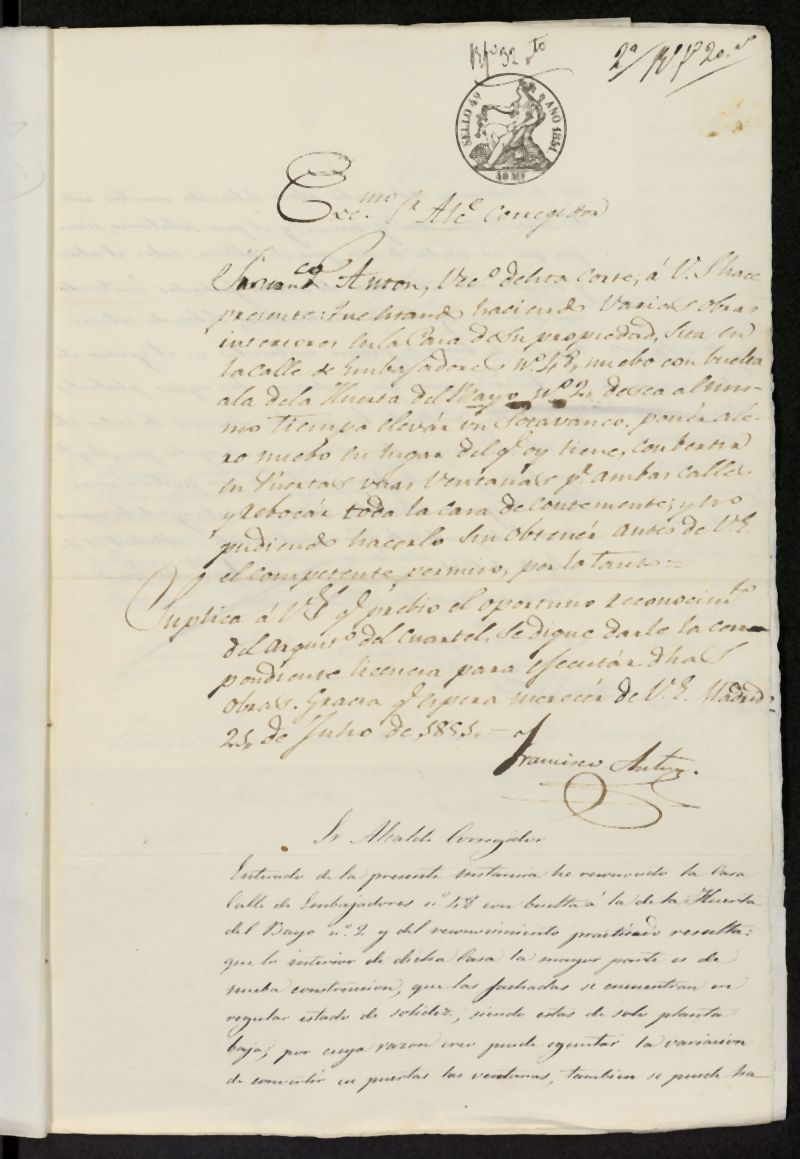 SELLO 4º AÑO 1851
40 Ms
Exc.mo Sr. Alc.e Corregidor
Franc.co Anton, Vec.o de esta Corte, á V.S. hace
presente: Que estando haciendo Varias obras
interiores en la Casa de su propiedad, sita en
la Calle de Embajadores Nº 48, nuebo con buelta
ala dela Huerta del Bayo nº 2, desea al mis-
mo tiempo elevár un Sotavanco, ponér ale-
ro nuebo en lugar del q.e oy tiene, combertir
en Puertas unas Ventanas p.r ambas calles
y rebocár toda la casa decentemente; y no
pudiendo hacerlo sin obtenér antes de V.E.
el competente permiso, por lo tanto =
Suplica á V.E. q.e prebio el oportuno reconocim.to
del Arquit.o del Cuartel, se digne darle la corres
pondiente licencia para ejecutár dhas
obras. Gracia q.e espera merecér de V.E. Madrid
25, de Julio de 1851, =
Francisco Anton.
Sr Alcalde Corregidor
Enterado de la presente instancia he reconocido la Casa
Calle de Embajadores nº 48 con buelta á la de la Huerta
del Bayo nº 2 y del reconocimiento practicado resulta:
que lo interior de dicha Casa la mayor parte es de
nueba construccion, que las fachadas se encuentran en
regular estado de solidez, siendo estas de solo planta
baja; por cuya razon creo puede egecutar la variacion
de convertir en puertas las ventanas, tambien se puede ha